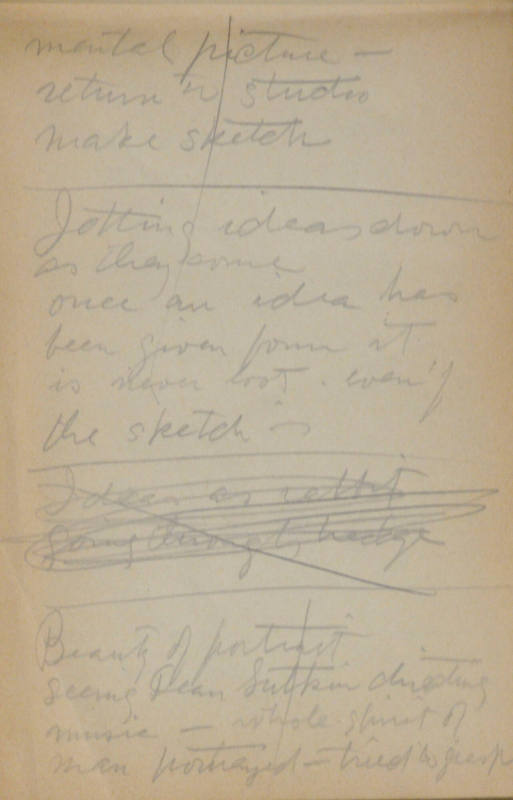 mental picture —
return to studio
make sketch
Jotting ideas down
as they come
once an idea has
been given form it
is never lost. even if
the sketch is
Ideas as rabbit
going through hedge
Beauty of portrait
seeing Dean directing
music — whole spirit of
man portrayed — tried to grasp